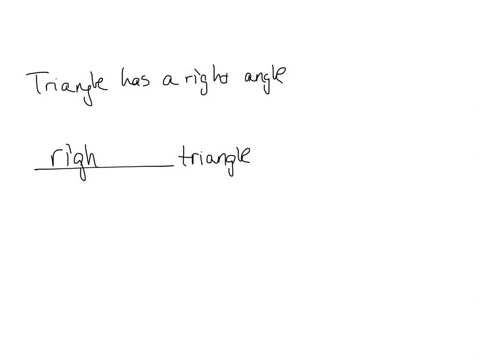 Triangle has a right angle
righ triangle